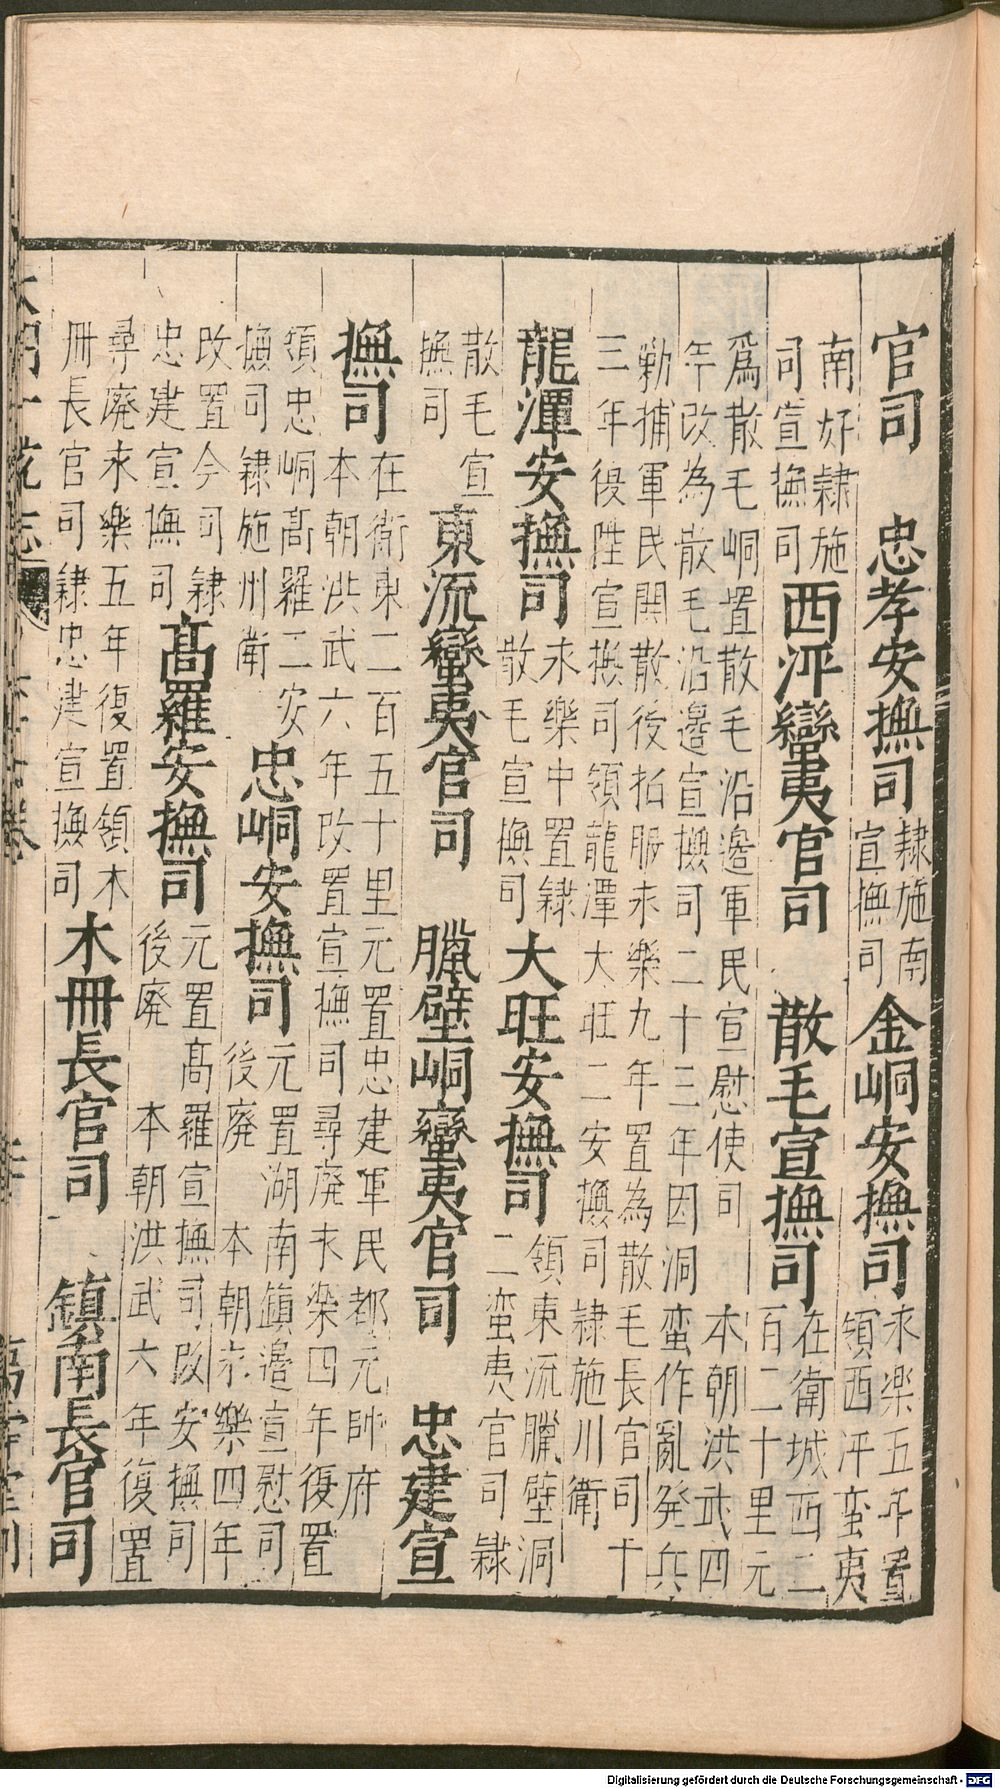 官司　忠孝安撫司 隸施南宣撫司 金峒安撫司 永樂五年置領西泙蛮夷
南好隸施
司宣撫司 西泙蠻夷官司　散毛宣撫司 在衛城西二百二十里元
爲散毛峒置散毛沿邊軍民宣慰使司　本朝洪武四
年改為散毛沿邊宣撫司二十三年因洞蛮作亂発兵
勦捕軍民関散後招服永樂九年置為散毛長官司十
三年復陞宣撫司領龍潭大旺二安撫司隸施川衛
龍潭安撫司 永樂中置隸散毛宣撫司 大旺安撫司 領東流臘壁洞二蛮夷官司隸
散毛宣
撫司 東流蠻夷官司　臘壁峒蠻夷官司　忠建宣
撫司 在衛東二百五十里元置忠建軍民都元帥府
本朝洪武六年改置宣撫司尋廢永樂四年復置
領忠峒高羅二安
撫司隸施州衛 忠峒安撫司 元置湖南鎮邊宣慰司後廢　本朝永樂四年
改置今司隸
忠建宣撫司 高羅安撫司 元置高羅宣撫司改安撫司後廢　本朝洪武六年復置
尋廢永樂五年復置領木
册長官司隸忠建宣撫司 木冊長官司　鎮南長官司